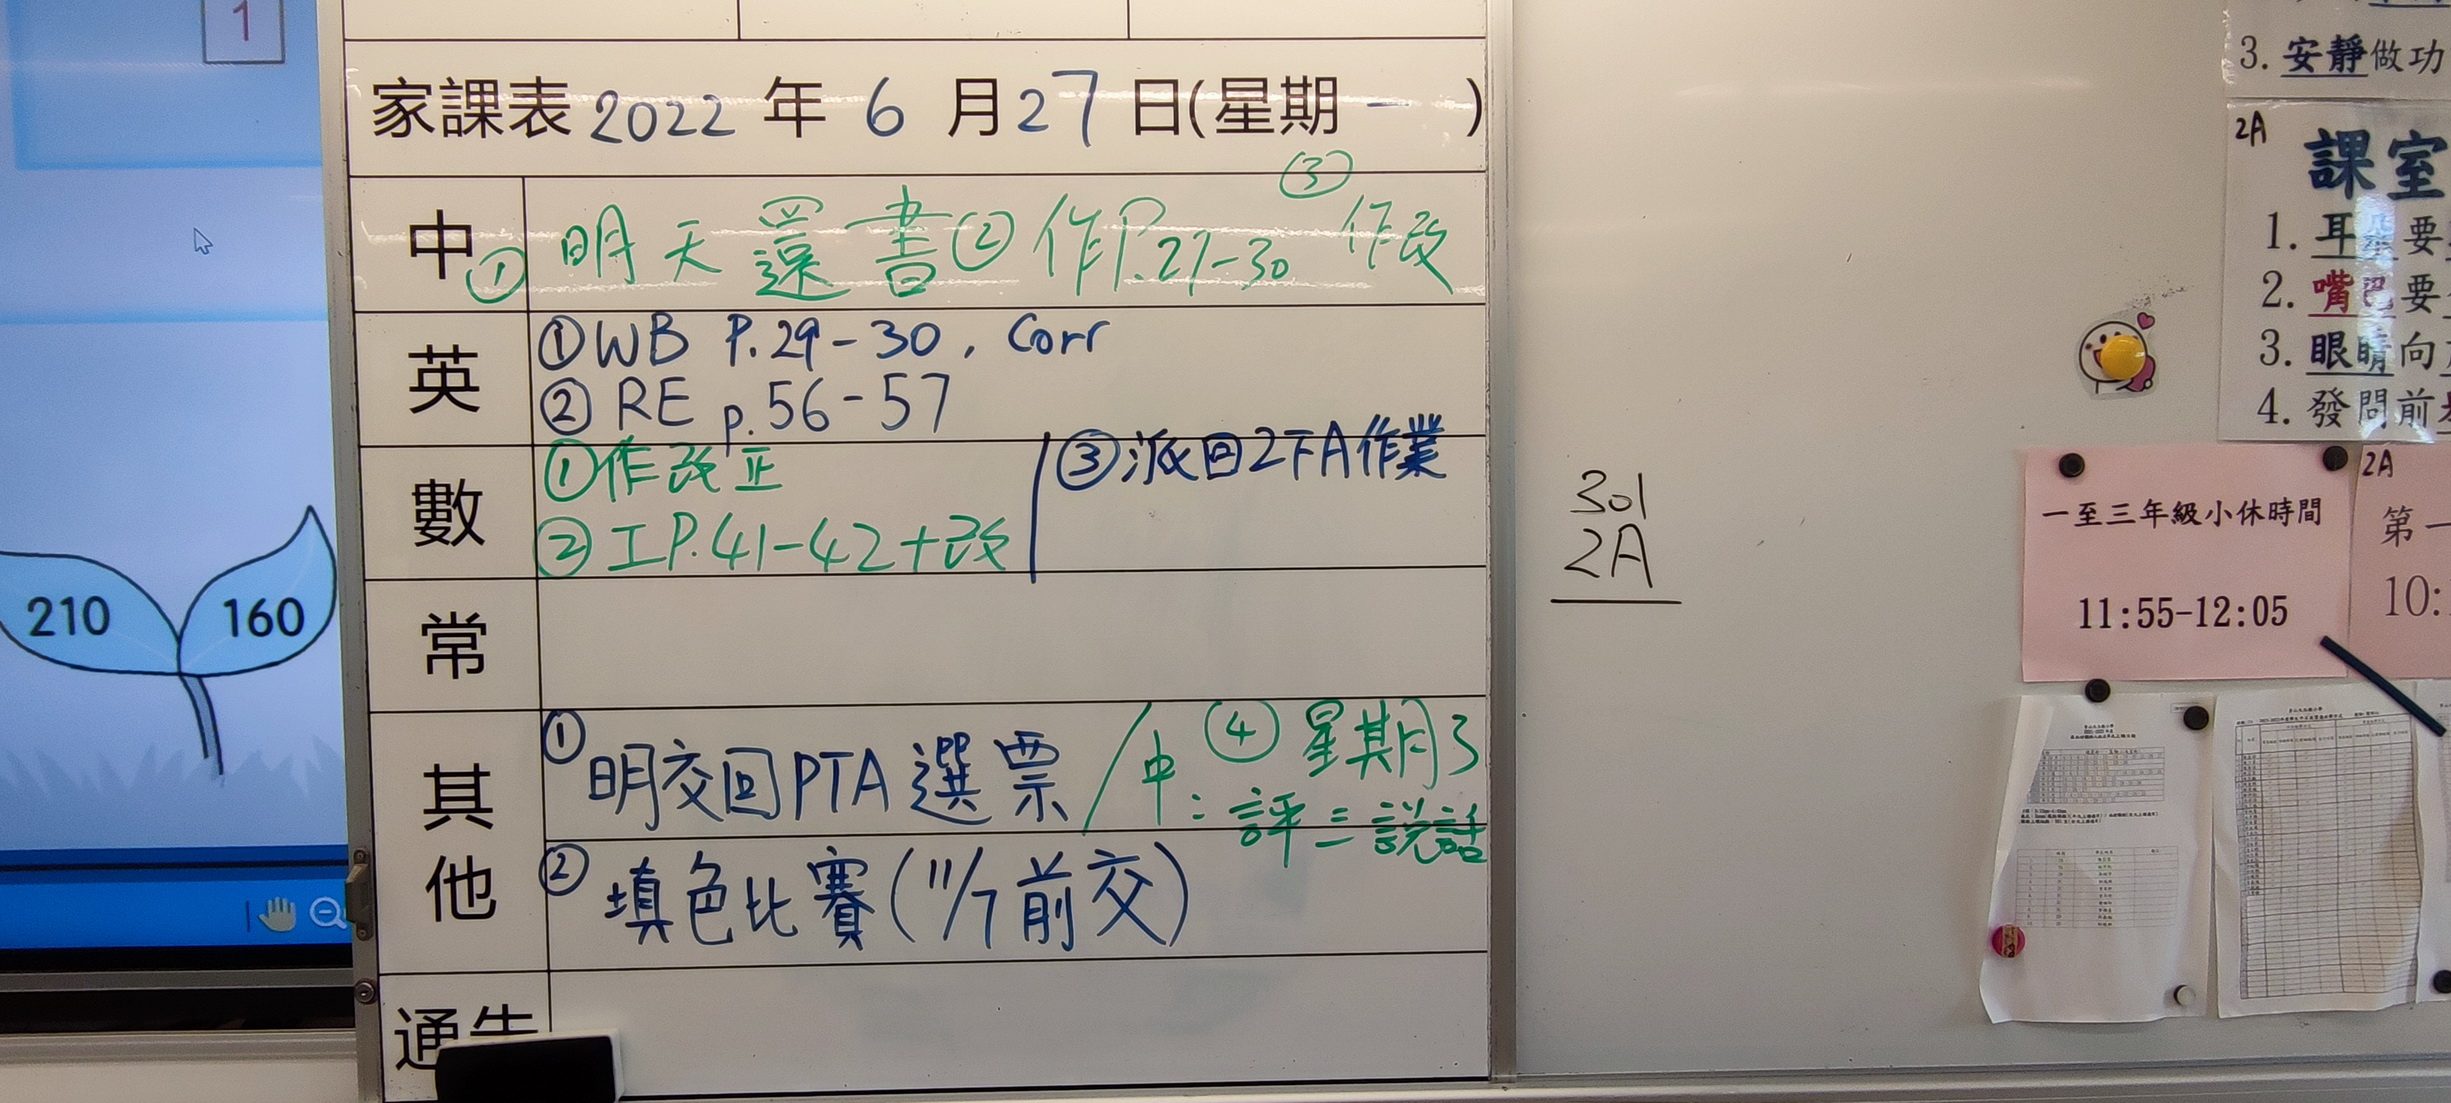 1
家課表 2022 年 6 月 27 日(星期一)
中 ① 明天還書 ② 作P.27-30 ③ 作改
英 ① WB P.29-30, Corr
② RE p.56-57
數 ① 作改正
② 工P.41-42+改
③ 派回2下A作業
常
其他 ① 明交回PTA選票 / 中: ④ 星期3
評三說話
② 填色比賽(11/7前交)
通告
210
160
301
2A
3. 安靜做功
2A
課室
1. 耳朵要
2. 嘴巴要
3. 眼睛向
4. 發問前
一至三年級小休時間
11:55-12:05
2A
第一
10: